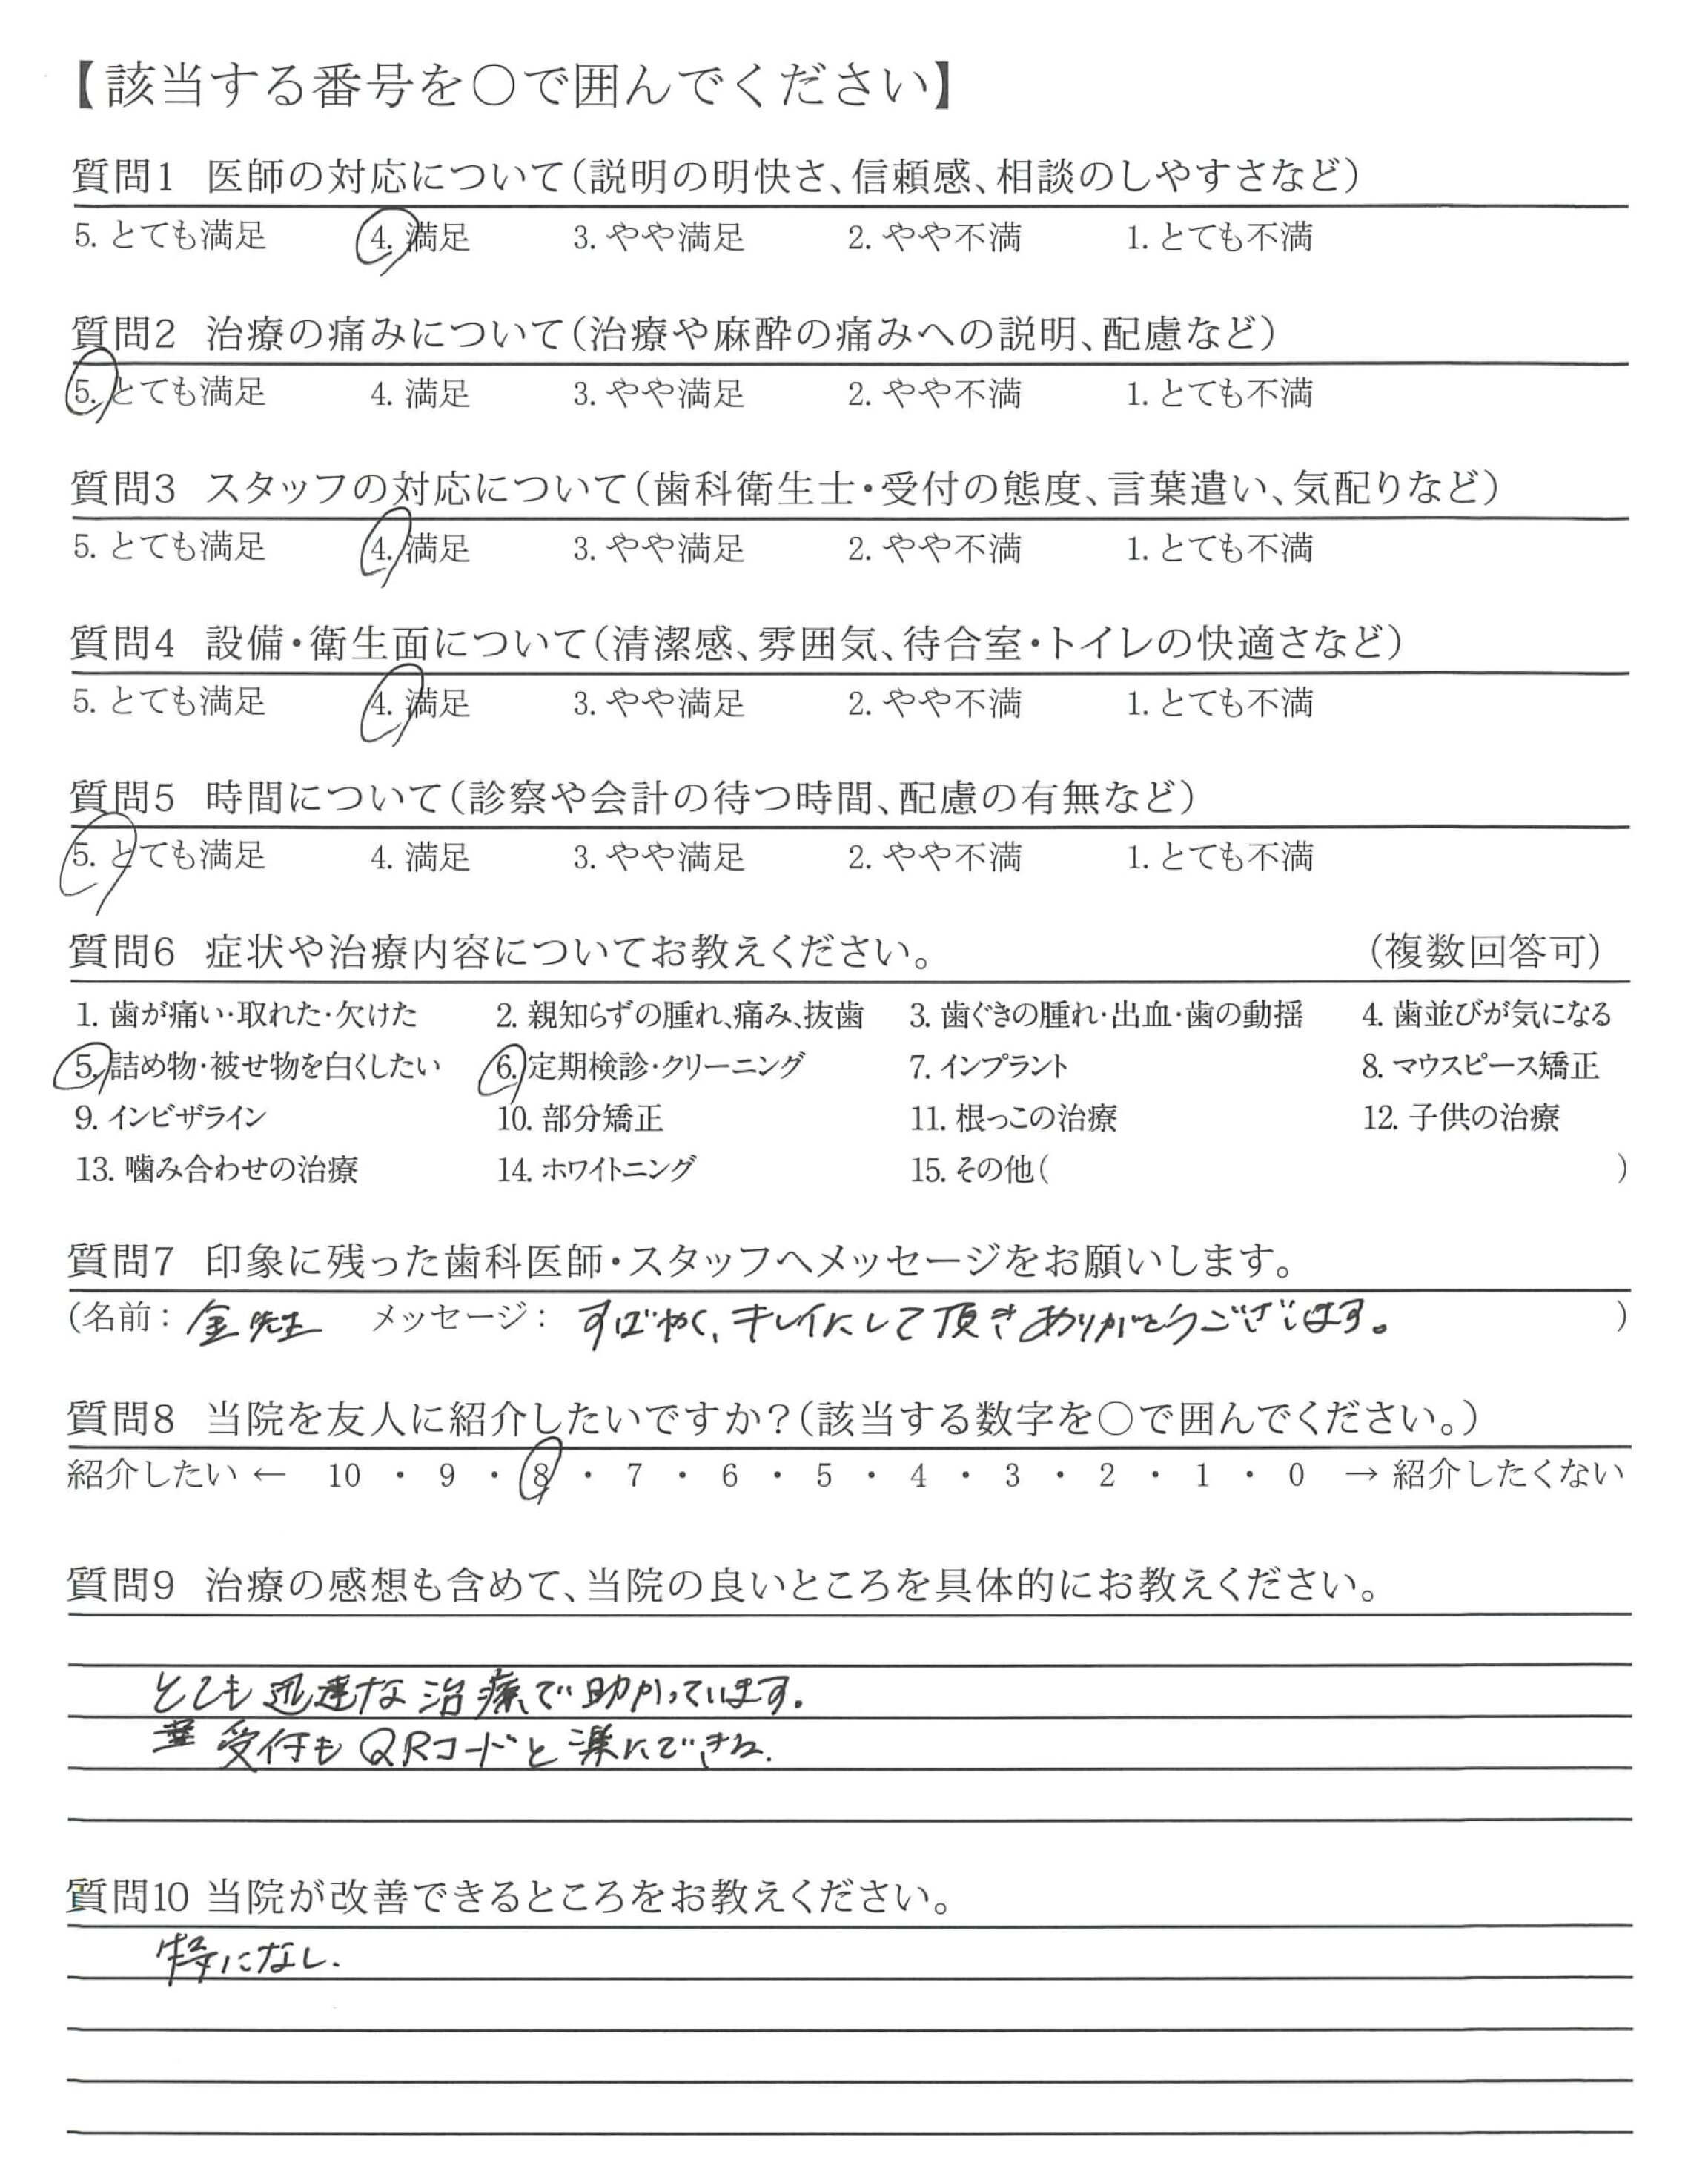 【該当する番号を○で囲んでください】
質問1 医師の対応について(説明の明快さ、信頼感、相談のしやすさなど)
5. とても満足 4. 満足 3. やや満足 2. やや不満 1. とても不満
質問2 治療の痛みについて(治療や麻酔の痛みへの説明、配慮など)
5. とても満足 4. 満足 3. やや満足 2. やや不満 1. とても不満
質問3 スタッフの対応について(歯科衛生士・受付の態度、言葉遣い、気配りなど)
5. とても満足 4. 満足 3. やや満足 2. やや不満 1. とても不満
質問4 設備・衛生面について(清潔感、雰囲気、待合室・トイレの快適さなど)
5. とても満足 4. 満足 3. やや満足 2. やや不満 1. とても不満
質問5 時間について(診察や会計の待つ時間、配慮の有無など)
5. とても満足 4. 満足 3. やや満足 2. やや不満 1. とても不満
質問6 症状や治療内容についてお教えください。 (複数回答可)
1. 歯が痛い・取れた・欠けた 2. 親知らずの腫れ、痛み、抜歯 3. 歯ぐきの腫れ・出血・歯の動揺 4. 歯並びが気になる
5. 詰め物・被せ物を白くしたい 6. 定期検診・クリーニング 7. インプラント 8. マウスピース矯正
9. インビザライン 10. 部分矯正 11. 根っこの治療 12. 子供の治療
13. 噛み合わせの治療 14. ホワイトニング 15. その他( )
質問7 印象に残った歯科医師・スタッフへメッセージをお願いします。
(名前: 金先生 メッセージ: すばやく、キレイにして頂きありがとうございます。 )
質問8 当院を友人に紹介したいですか?(該当する数字を○で囲んでください。)
紹介したい ← 10 ・ 9 ・ 8 ・ 7 ・ 6 ・ 5 ・ 4 ・ 3 ・ 2 ・ 1 ・ 0 → 紹介したくない
質問9 治療の感想も含めて、当院の良いところを具体的にお教えください。
とても迅速な治療で助かっています。
受付もQRコードと楽にできる.
質問10 当院が改善できるところをお教えください。
特になし.